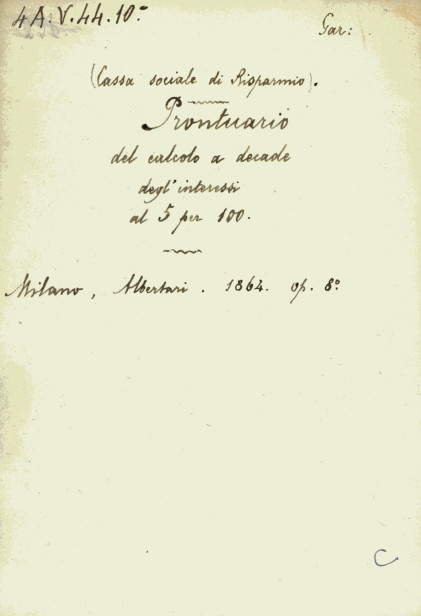 4 A. V. 44. 10.
Gar:
(Cassa sociale di Risparmio).
Prontuario
del calcolo a decade
degl'interessi
al 5 per 100.
Milano, Albertari. 1864. op. 8º
C